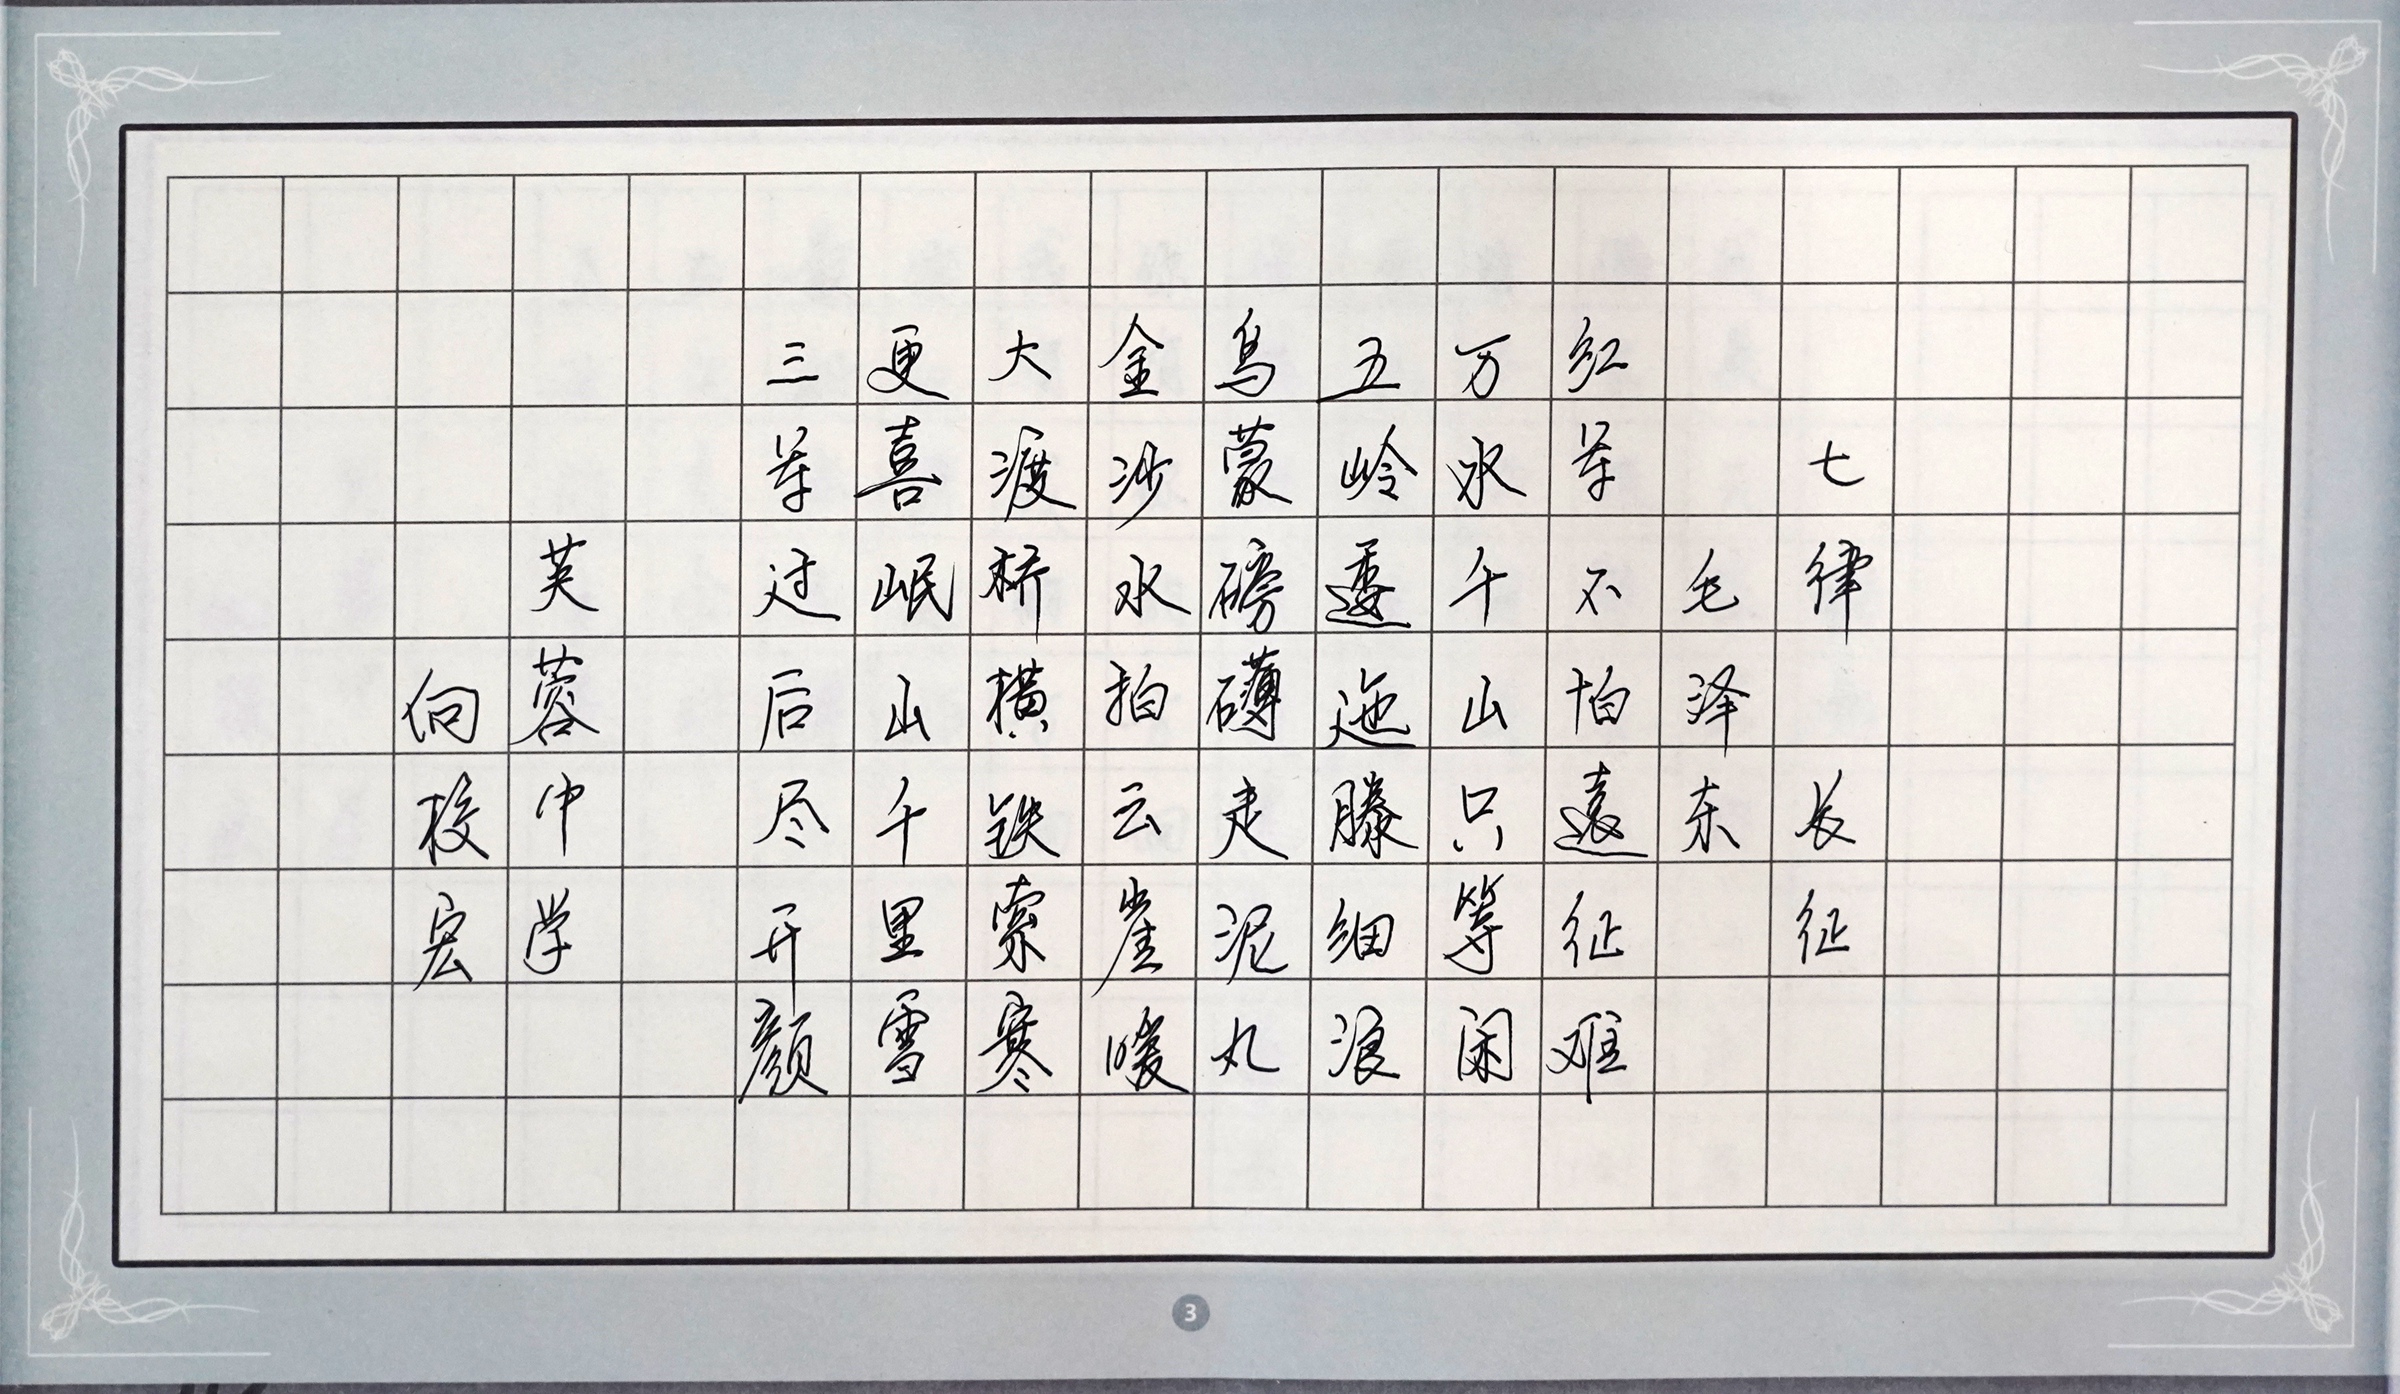 七律 长征
毛泽东
红军不怕遠征难
万水千山只等闲
五岭逶迤腾细浪
乌蒙磅礴走泥丸
金沙水拍云崖暖
大渡桥横铁索寒
更喜岷山千里雪
三军过后尽开颜
芙蓉中学
向校宏
3